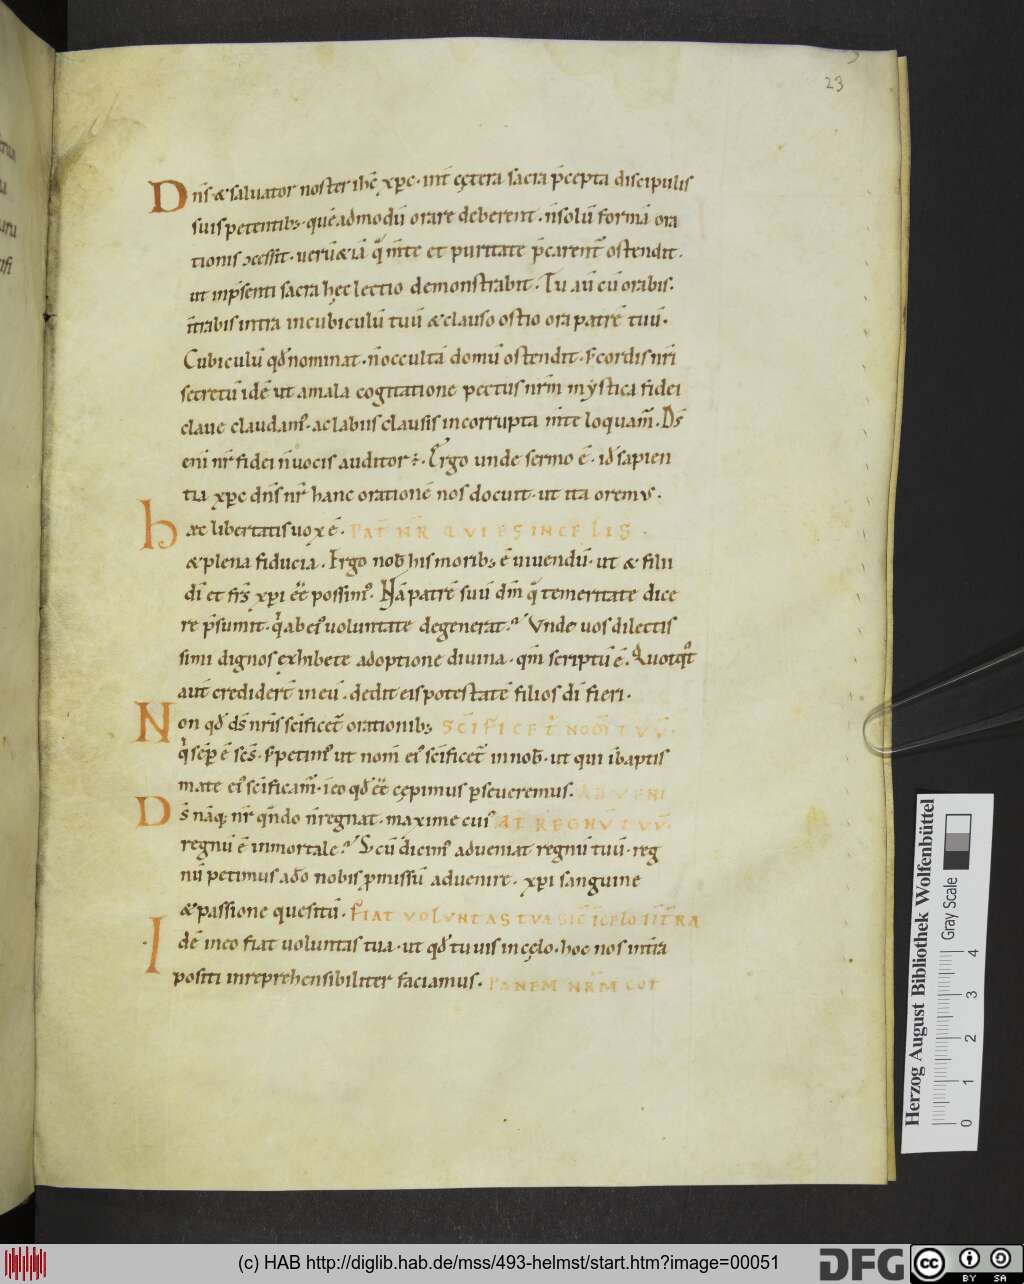 23
Dnſ & ſaluator noſter ihc̄ xp̄c · int̄ cętera ſacra p̄cepta diſcipuliſ
ſuiſ petentib; · quēadmodū orare deberent · n̄ ſolū formā ora
tioniſ ɔceſſit · uerū & iā q̄ m̄te et puritate p̄carent̄ oſtendit ·
ut in p̄ſenti ſacra hęc lectio demonſtrabit · Tu aū cū orabiſ ·
īntrabiſ intra in cubiculū tuū & clauſo oſtio ora patrē tuū ·
Cubiculū qd̄ nominat · n̄ occultā domū oſtendit · ſ; cordiſ nr̄i
ſecretū idē ut a mala cogitatione pectuſ nrm̄ myſtica fidei
claue claudam᷒ · ac labiiſ clauſiſ incorrupta m̄te loquam̄ · Dſ̄
eni nr̄ fidei n̄ uociſ auditor ē · Ergo unde ſermo ē · id ſapien
tia xp̄c dn̄ſ nr̄ hanc orationē noſ docuit · ut ita oremuſ ·
haec libertatiſ uox ē · PAT̄ NR̄ QUI ES IN CELIS ·
& plena fiducia · Ergo nob̄ hiſ morib; ē uiuendū · ut & filii
di et fr̄ſ xp̄i eē̄ poſſim᷒ · Nā patrē ſuū dm̄ q̄ temeritate dice
re p̄ſumit · q̄ ab ei᷒ uoluntate degenerat · Unde uoſ dilectiſ
ſimi dignoſ exhibete adoptione diuina · qm̄ ſcriptū ē · Quotqt̄
aut̄ credidert̄ in eū · dedit eiſ poteſtatē filioſ di fieri ·
Non qd̄ dſ̄ nr̄iſ ſcificet̄ orationib; SCIFICET NOM̄ TUŪ ·
q̄ ſep̄ ē ſcſ̄ · ſ; petim᷒ ut nom̄ ei᷒ ſcificet̄ in nob̄ · ut qui i baptiſ
mate ei᷒ ſcificam̄ · i eo qd̄ eē̄ cępimuſ pſeueremuſ · ADUENI
Dſ̄ nāq; nr̄ qn̄do n̄ regnat · maxime cui᷒ AT REGNŪ TUŪ ·
regnū ē inmortale · S; cū dicim᷒ adueniat regnū tuū · reg
nū petimuſ ado nobiſ pmiſſū aduenire · xp̄i ſanguine
& paſſione queſitū · FIAT VOLVNTAS TVA SIC̄ I CELO I IT̄RA
Idē in eo fiat uoluntaſ tua · ut qd̄ tu uiſ in cęlo · hoc noſ in tr̄a
poſiti inreprehenſibiliter faciamuſ · PANEM NRM̄ COT
Herzog August Bibliothek Wolfenbüttel
Gray Scale
0 1 2 3 4
(c) HAB http://diglib.hab.de/mss/493-helmst/start.htm?image=00051
DFG
cc BY SA